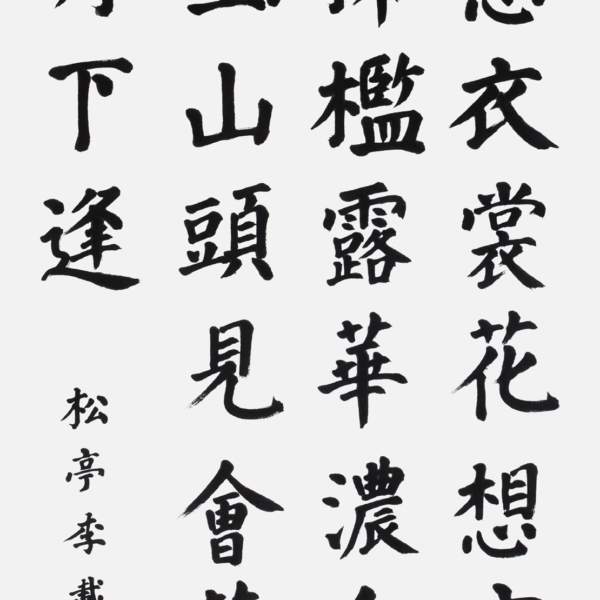 衣裳花想
檻露華濃
山頭見會
下逢
松亭李